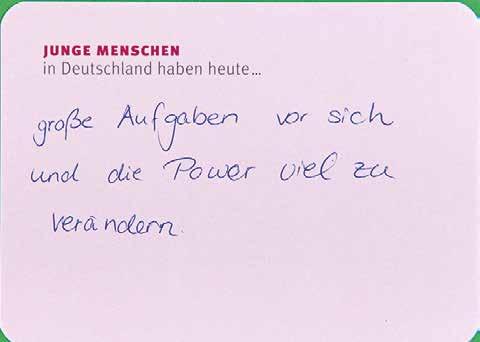 JUNGE MENSCHEN
in Deutschland haben heute...
große Aufgaben vor sich
und die Power viel zu
verändern.